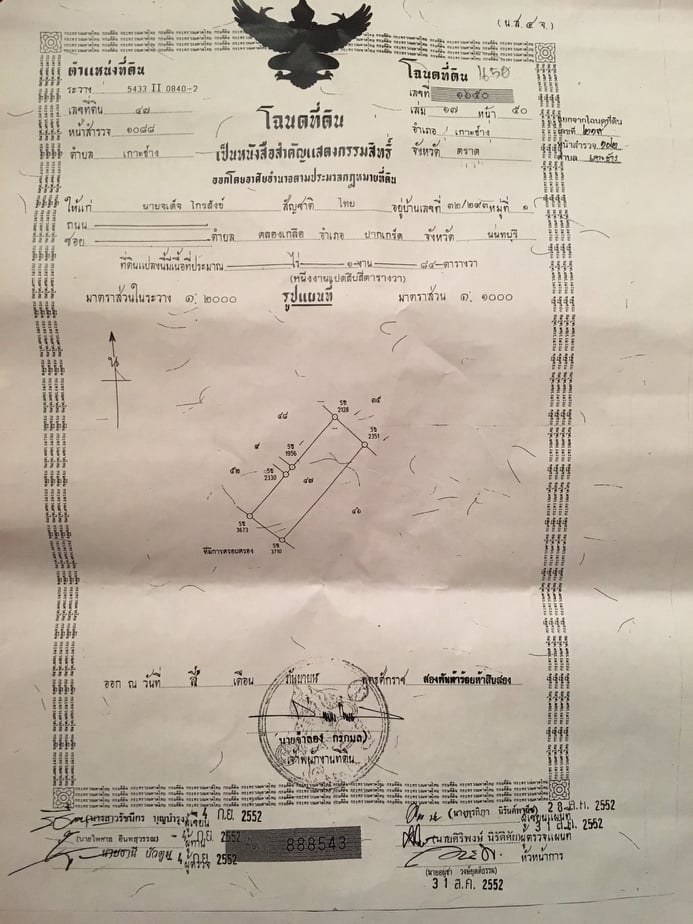 (น.ส.๔ จ.)
ตำแหน่งที่ดิน
ระวาง 5433 II 0840-2
เลขที่ดิน ๔๗
หน้าสำรวจ ๑๐๘๘
ตำบล เกาะช้าง
โฉนดที่ดิน
เป็นหนังสือสำคัญแสดงกรรมสิทธิ์
ออกโดยอาศัยอำนาจตามประมวลกฎหมายที่ดิน
โฉนดที่ดิน
เลขที่ ๑๖๕๐
เล่ม ๑๗ หน้า ๕๐
อำเภอ เกาะช้าง
จังหวัด ตราด
แยกจากโฉนดที่ดิน
เลขที่
หน้าสำรวจ
ตำบล
ให้แก่ นายจเด็จ ไกรสังข์ สัญชาติ ไทย อยู่บ้านเลขที่ ๓๒/๒๙๓ หมู่ที่ ๑
ถนน
ซอย ตำบล คลองเกลือ อำเภอ ปากเกร็ด จังหวัด นนทบุรี
ที่ดินแปลงนี้มีเนื้อที่ประมาณ ไร่ ๑ งาน ๘๔ ตารางวา
(หนึ่งงานแปดสิบสี่ตารางวา)
มาตราส่วนในระวาง ๑: ๒๐๐๐ รูปแผนที่ มาตราส่วน ๑: ๑๐๐๐
น
๓๕
๔๘
5ช
2128
5ช
2351
๙
5ช
1956
๕๒
5ช
2330
๔๗
๔๖
5ช
3673
5ช
3710
ที่มีการครอบครอง
ออก ณ วันที่ สี่ เดือน กันยายน พุทธศักราช สองพันห้าร้อยห้าสิบสอง
(นายจำลอง กรกมล)
เจ้าพนักงานที่ดิน
(นางสาวรัชนีกร บุญบำรุง) ผู้เขียน 4 ก.ย. 2552
(นายไพศาล อินทสุวรรณ) ผู้ทาน ก.ย. 2552
นายธานี ผู้ตรวจ 4 ก.ย. 2552
888543
ผู้เขียนแผนที่ 28 ส.ค. 2552
ผู้ตรวจแผนที่ 31 ส.ค. 2552
หัวหน้าการ
31 ส.ค. 2552